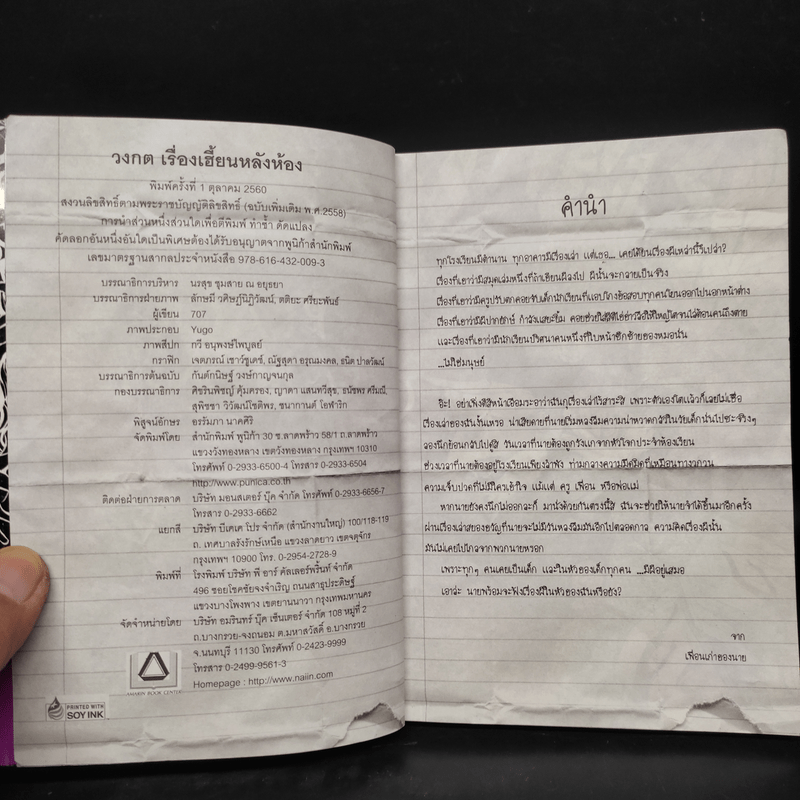 วงกต เรื่องเฮี้ยนหลังห้อง
พิมพ์ครั้งที่ 1 ตุลาคม 2560
สงวนลิขสิทธิ์ตามพระราชบัญญัติลิขสิทธิ์ (ฉบับเพิ่มเติม พ.ศ.2558)
การนำส่วนหนึ่งส่วนใดเพื่อตีพิมพ์ ทำซ้ำ ดัดแปลง
คัดลอกอันหนึ่งอันใดเป็นพิเศษต้องได้รับอนุญาตจากพูนิก้าสำนักพิมพ์
เลขมาตรฐานสากลประจำหนังสือ 978-616-432-009-3
บรรณาธิการบริหาร นรสุข ชุมสาย ณ อยุธยา
บรรณาธิการฝ่ายภาพ ลักษมี วศิษฏ์นิฏิวัฒน์, ตติยะ ศรียะพันธ์
ผู้เขียน 707
ภาพประกอบ Yugo
ภาพสีปก กวี อนุพงษ์ไพบูลย์
กราฟิก เจตภรณ์ เชาว์ชูเดช, ณัฐสุดา อรุณมงคล, ธนิต ปาลวัฒน์
บรรณาธิการต้นฉบับ กันต์กนิษฐ์ วงษ์กาญจนกุล
กองบรรณาธิการ ศิชรินพิชญ์ คุ้มครอง, ญาดา แสนทวีสุข, ธนัชพร ศรีมณี,
สุพิชชา วิวัฒน์โชติพร, ชนากานต์ โอฬาริก
พิสูจน์อักษร อรรัมภา นาคศิริ
จัดพิมพ์โดย สำนักพิมพ์ พูนิก้า 30 ซ.ลาดพร้าว 58/1 ถ.ลาดพร้าว
แขวงวังทองหลาง เขตวังทองหลาง กรุงเทพฯ 10310
โทรศัพท์ 0-2933-6500-4 โทรสาร 0-2933-6504
http://www.punica.co.th
ติดต่อฝ่ายการตลาด บริษัท มอนสเตอร์ บุ๊ค จำกัด โทรศัพท์ 0-2933-6656-7
โทรสาร 0-2933-6662
แยกสี บริษัท บีเคเค โปร จำกัด (สำนักงานใหญ่) 100/118-119
ถ. เทศบาลรังรักษ์เหนือ แขวงลาดยาว เขตจตุจักร
กรุงเทพฯ 10900 โทร. 0-2954-2728-9
พิมพ์ที่ โรงพิมพ์ บริษัท พี อาร์ คัลเลอร์พริ้นท์ จำกัด
496 ซอยโชคชัยจงจำเริญ ถนนสาธุประดิษฐ์
แขวงบางโพงพาง เขตยานนาวา กรุงเทพมหานคร
จัดจำหน่ายโดย บริษัท อมรินทร์ บุ๊ค เซ็นเตอร์ จำกัด 108 หมู่ที่ 2
ถ.บางกรวย-จงถนอม ต.มหาสวัสดิ์ อ.บางกรวย
จ.นนทบุรี 11130 โทรศัพท์ 0-2423-9999
โทรสาร 0-2499-9561-3
Homepage : http://www.naiin.com
AMARIN BOOK CENTER
PRINTED WITH
SOY INK
คำนำ
ทุกโรงเรียนมีตำนาน ทุกอาคารมีเรื่องเล่า แต่เธอ... เคยได้ยินเรื่องผีเหล่านี้รึเปล่า?
เรื่องที่เขาว่ามีสมุดเล่มหนึ่งที่ถ้าเขียนผีลงไป ผีนั้นจะกลายเป็นจริง
เรื่องที่เขาว่ามีครูปริศนาคอยจับเด็กนักเรียนที่แอบโกงข้อสอบทุกคนโยนออกไปนอกหน้าต่าง
เรื่องที่เขาว่ามีผีปากยักษ์ กำลังแสยะยิ้ม
และเรื่องที่เขาว่ามีนักเรียนปริศนาคนหนึ่งที่ใบหน้าซีกซ้ายของหมอนั่น
...ไม่ใช่มนุษย์
ชิ! อย่าเพิ่งตีสีหน้าเอือมระอาว่าฉันกุเรื่องเล่าไร้สาระสิ เพราะตัวเองโตแล้วก็เลยไม่เชื่อ
เรื่องเล่าของฉันงั้นเหรอ น่าเสียดายที่นายเริ่มหลงลืมความน่าหวาดกลัวในวัยเด็กนั่นไปซะจริงๆ
ลองนึกย้อนกลับไปดูสิ วันเวลาที่นายต้องถูกรังแกจากหัวโจกประจำห้องเรียน
ช่วงเวลาที่นายต้องอยู่โรงเรียนเพียงลำพัง ท่ามกลางความมืดมิดที่เหมือนทางวงกต
ความเจ็บปวดที่ไม่มีใครเข้าใจ แม้แต่ ครู เพื่อน หรือพ่อแม่
หากนายยังคงนึกไม่ออกละก็ มานั่งด้วยกันตรงนี้สิ ฉันจะช่วยให้นายจำได้ขึ้นมาอีกครั้ง
ผ่านเรื่องเล่าสยองขวัญที่นายจะไม่มีวันหลงลืมมันอีกไปตลอดกาล ความคิดเรื่องผีนั้น
มันไม่เคยไปไกลจากพวกนายหรอก
เพราะทุกๆ คนเคยเป็นเด็ก และในหัวของเด็กทุกคน ...มีผีอยู่เสมอ
เอาล่ะ นายพร้อมจะฟังเรื่องผีในหัวของฉันหรือยัง?
จาก
เพื่อนเก่าของนาย